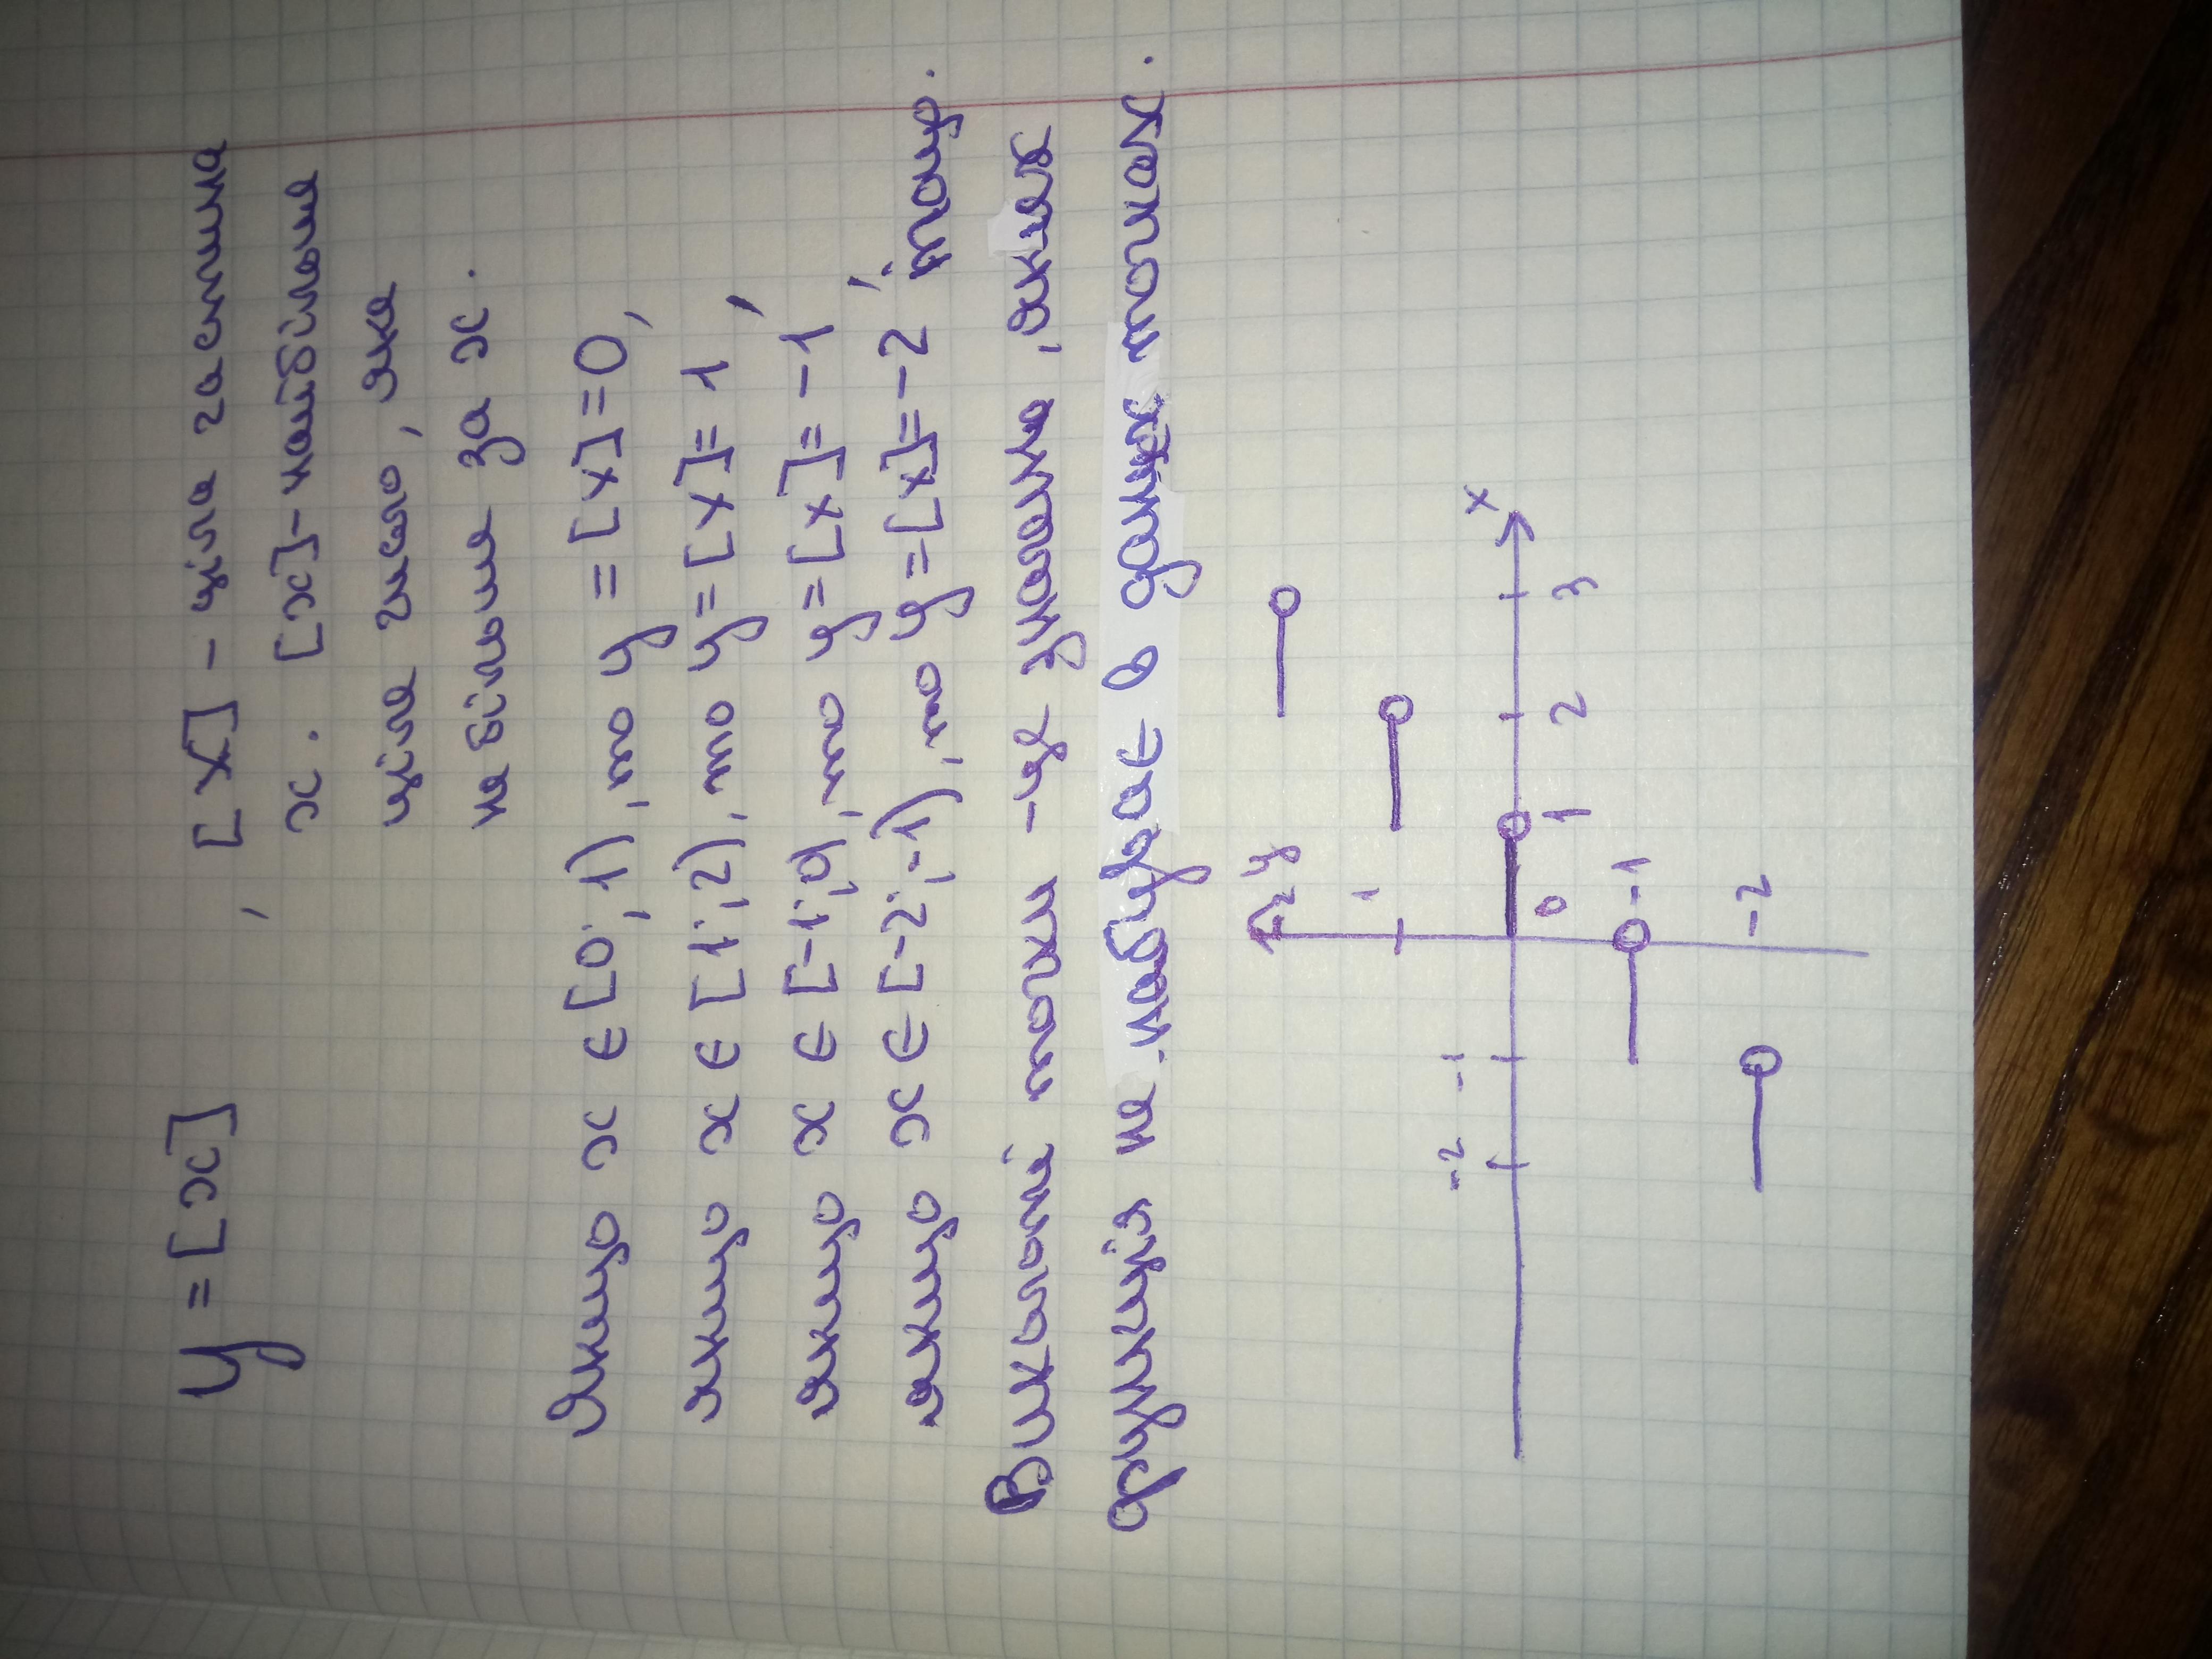 y = [x] , [x] – ціла частина
x. [x]- найбільше
ціле число, яке
не більше за x.
Якщо x ∈ [0; 1), то y = [x] = 0,
якщо x ∈ [1; 2), то y = [x] = 1,
якщо x ∈ [-1; 0), то y = [x] = -1,
якщо x ∈ [-2; -1), то y = [x] = -2 тощо.
Виколоті точки - це значення, яких
функція не набуває в даних точках.
2 y
1
x
-2 -1 0 1 2 3
-1
-2